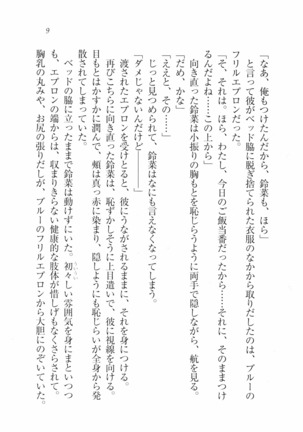 9
「なあ、俺もつけたんだから、鈴菜も、ほら」
と言って彼がベッドの脇に脱ぎ捨てられた衣服のなかから取りだしたのは、ブルーの
フリルエプロンだった。
「そ、それは。ほら、わたし、今日のご飯当番だったから……それに、そのままつけ
るんだよね……この上から」
向き直った鈴菜は小振りの胸もとを恥じらうように両手で隠しながら、航を見る。
「だめ、かな」
「ええと、その……」
じっと見つめられて、鈴菜はなにも言えなくなってしまう。
「ダメじゃないんだけど――」
渡されたエプロンを受けとると、彼にうながされるままに、それを身につける。
再びこちらに向き直った鈴菜は、恥ずかしそうに上目遣いで、彼に視線を向ける。
目もとはかすかに潤んで、頬は真っ赤に染まり、隠しようにも恥じらいが全身から発
散されてしまっていた。
ベッドの脇に立ったままで鈴菜は動けずにいた。初々しい雰囲気を身にまといつつ
も、エプロンの端からは、収まりきらない健康的な肢体が惜しげもなくさらされて。
胸乳の丸みや、お尻の張りだしが、ブルーのフリルエプロンから大胆にのぞいていた。